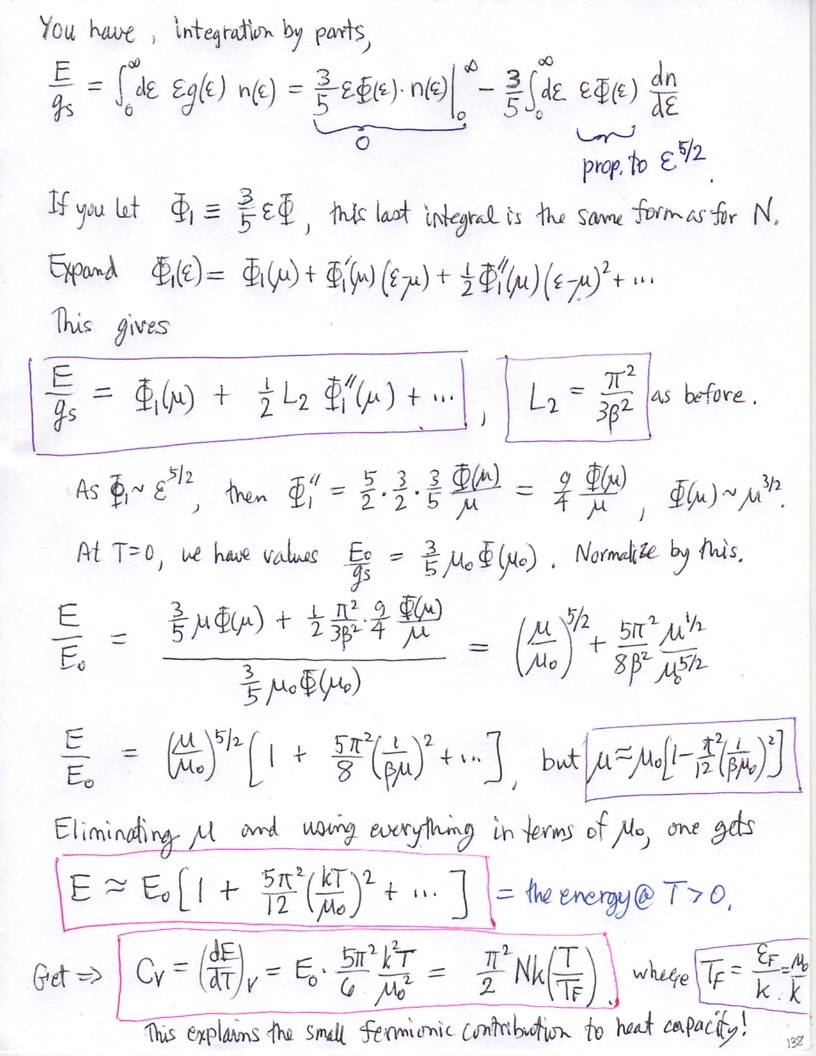 You have, integration by parts,
E/gs = ∫₀^∞ dε εg(ε) n(ε) = 3/5 εΦ(ε)·n(ε)|₀^∞ − 3/5 ∫₀^∞ dε εΦ(ε) dn/dε
0
prop. to ε^5/2.
If you let Φ₁ ≡ 3/5 εΦ, this last integral is the same form as for N.
Expand Φ₁(ε) = Φ₁(μ) + Φ₁′(μ)(ε-μ) + 1/2 Φ₁″(μ)(ε-μ)² + ...
This gives
E/gs = Φ₁(μ) + 1/2 L₂ Φ₁″(μ) + ... , L₂ = π²/3β² as before.
As Φ₁ ~ ε^5/2, then Φ₁″ = 5/2 · 3/2 · 3/5 Φ(μ)/μ = 9/4 Φ(μ)/μ, Φ(μ) ~ μ^3/2.
At T=0, we have values E₀/gs = 3/5 μ₀Φ(μ₀). Normalize by this.
E/E₀ = (3/5 μΦ(μ) + 1/2 π²/3β² · 9/4 Φ(μ)/μ) / (3/5 μ₀Φ(μ₀)) = (μ/μ₀)^5/2 + 5π²/8β² μ^1/2/μ₀^5/2
E/E₀ = (μ/μ₀)^5/2 [1 + 5π²/8 (1/βμ)² + ...], but μ ≈ μ₀[1 − π²/12 (1/βμ₀)²]
Eliminating μ and using everything in terms of μ₀, one gets
E ≈ E₀[1 + 5π²/12 (kT/μ₀)² + ...] = the energy @ T>0.
Get ⇒ Cv = (dE/dT)v = E₀ · 5π²/6 k²T/μ₀² = π²/2 Nk(T/TF). where TF = εF/k = μ₀/k
This explains the small fermionic contribution to heat capacity!
138